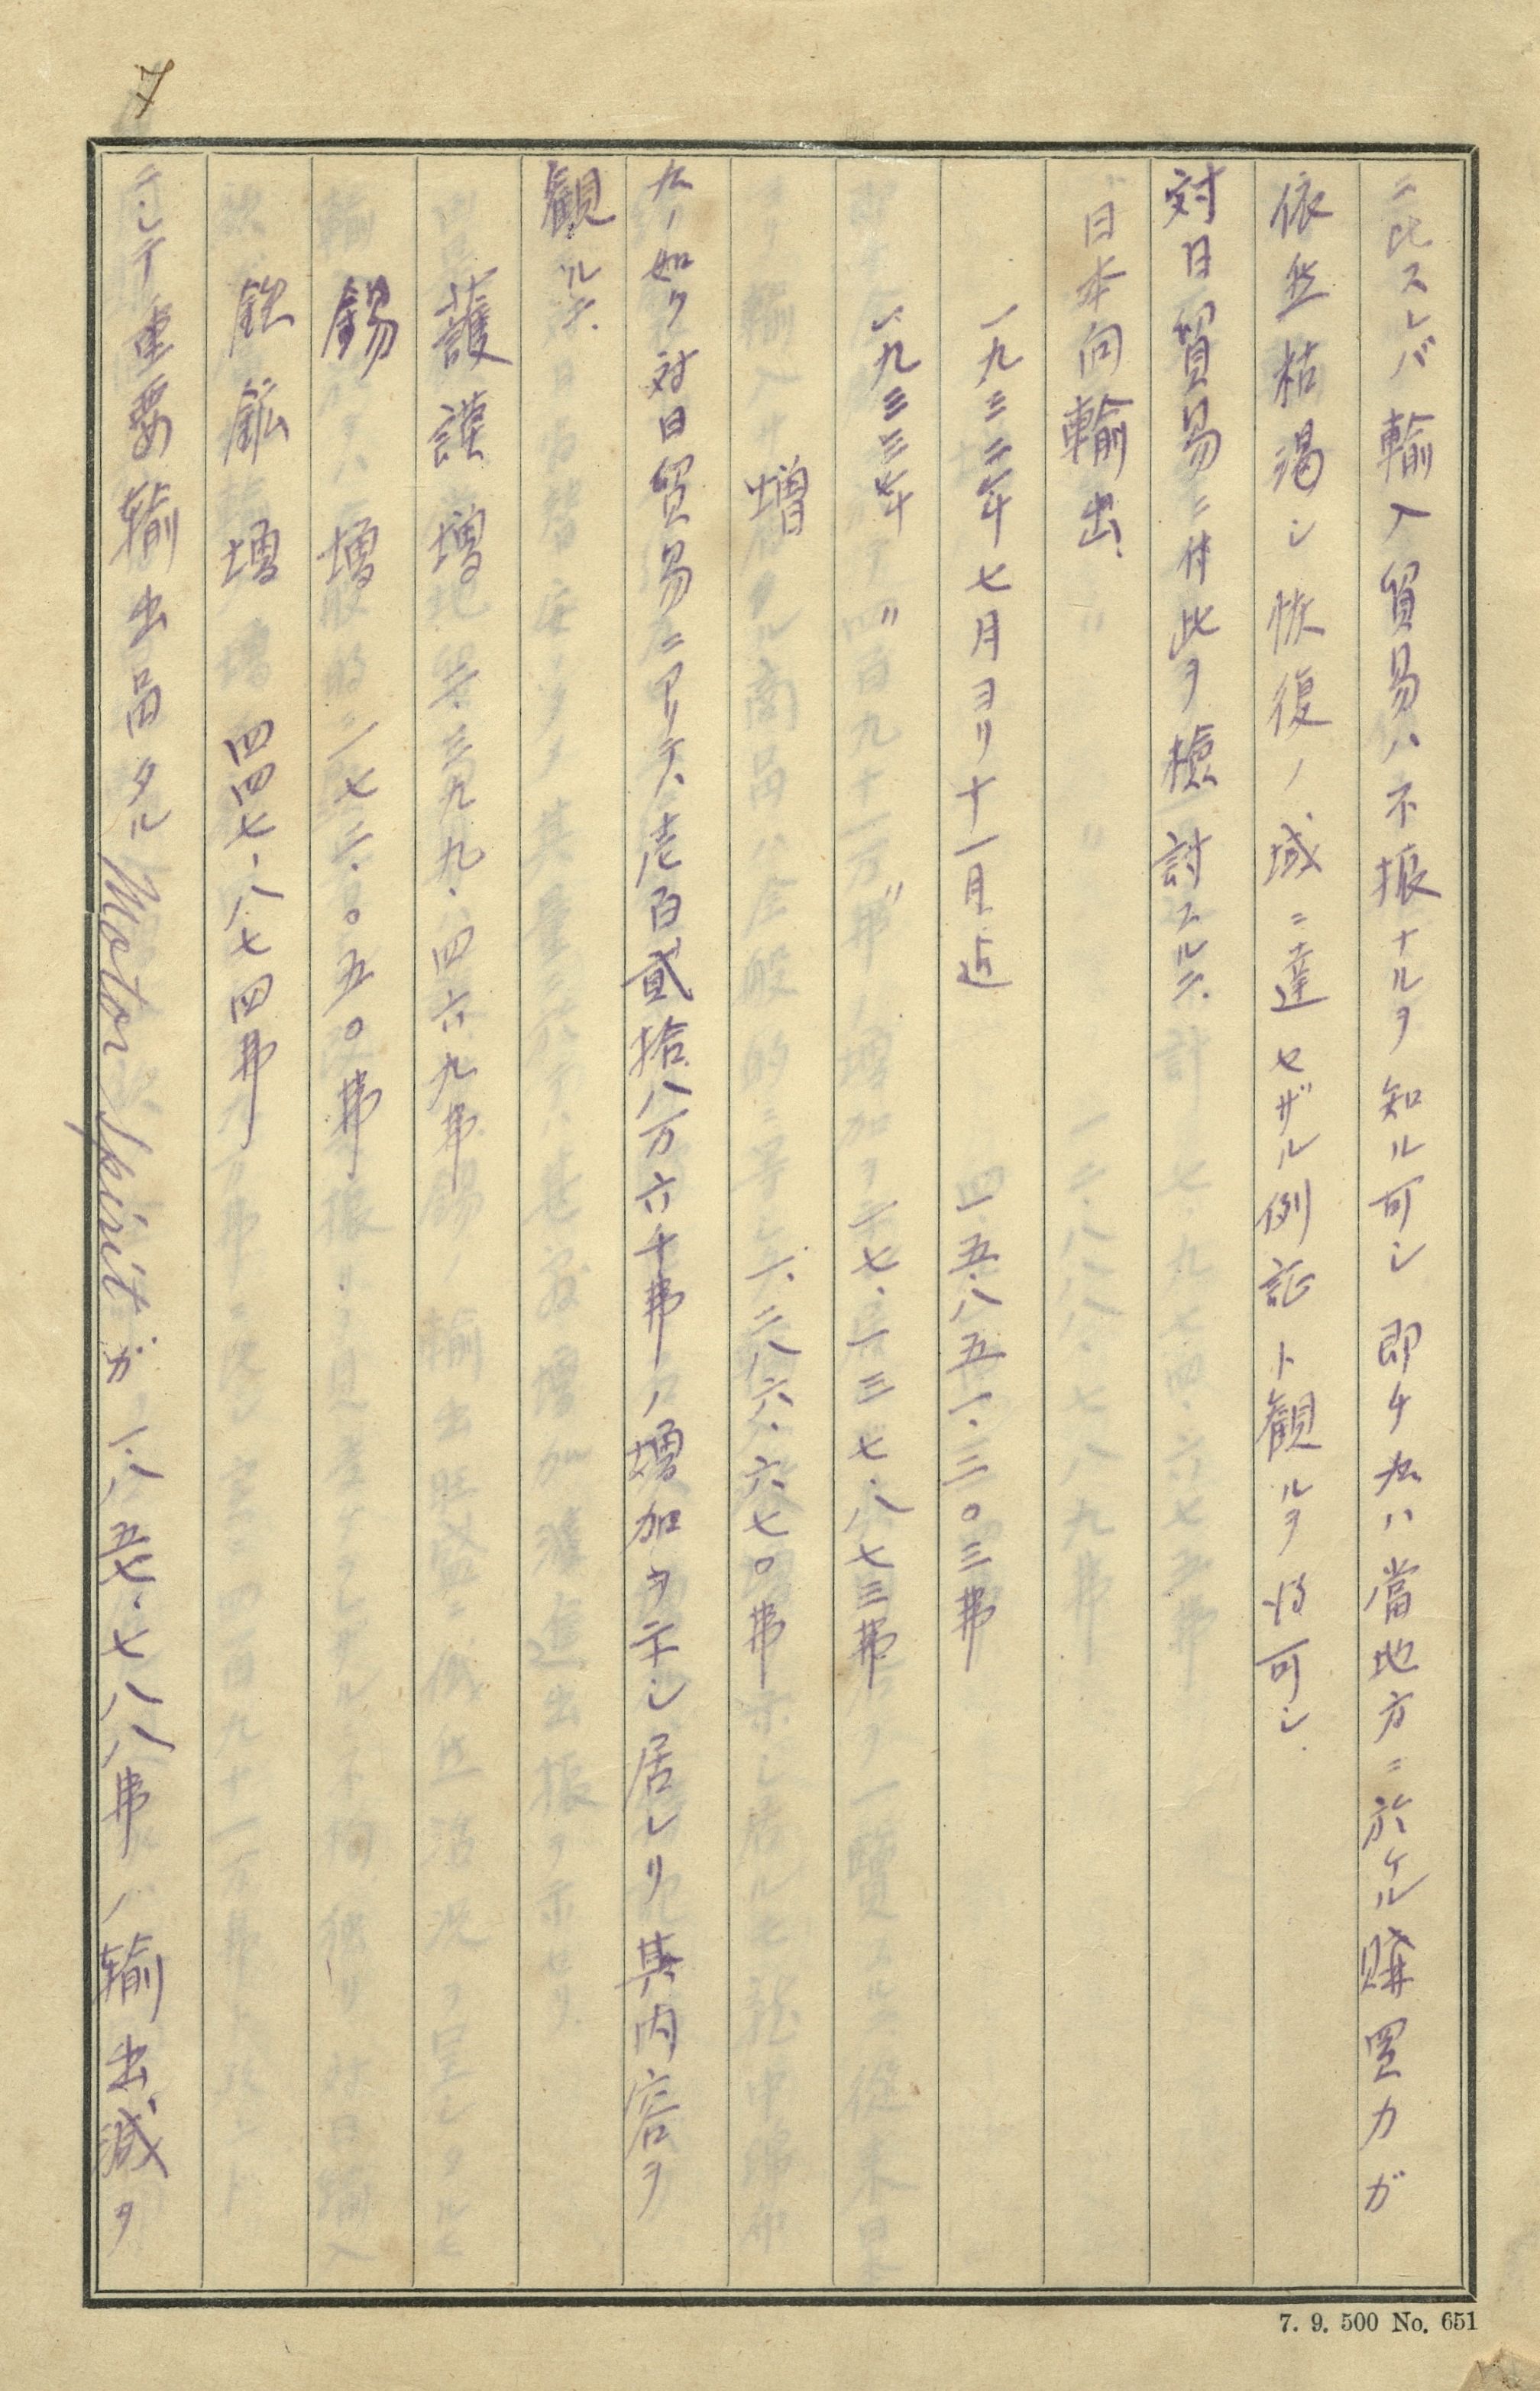 7
ニ比スレバ輸入貿易ハ不振ナルヲ知ル可シ即チ右ハ當地方ニ於ケル購買力ガ
依然枯渇シ恢復ノ域ニ達セザル例証ト観ルヲ得可シ.
対日貿易ニ付此ヲ檢討スルニ.
日本向輸出.
一九三二年七月ヨリ十一月迄 一五.八五一.三〇三弗
一九三三年 〃 〃 一七.一三七.八七三弗
増 一.二八六.六七〇弗
右ノ如ク対日貿易ニアリテハ壱百貳拾八万六千弗ノ増加ヲ示シ居レリ其内容ヲ
観ルニ.
護謨 増 三九九.四六九弗
錫 増 一七三.〇五〇弗
鉄鉱 増 四四七.八七四弗
ニシテ重要輸出品タル Motor Spirit ガ一.八五七.七八八弗ノ輸出減タ
7. 9. 500 No. 651